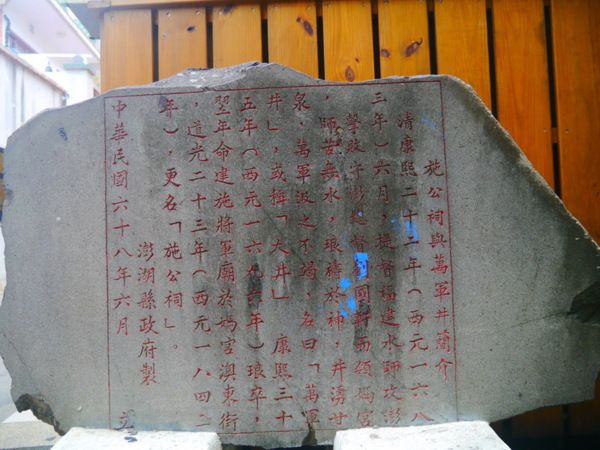 施公祠與萬軍井簡介
清康熙二十二年(西元一六八
三年)六月,提督福建水師攻澎
擊敗守澎總督劉國軒而領媽宮
,師苦無水,琅禱於神,井湧甘
泉,萬軍汲之不竭,名曰「萬軍
井」,或稱「大井」 康熙三十
五年(西元一六九六年)琅卒,
翌年命建施將軍廟於媽宮澳東街
,道光二十三年(西元一八四二
年),更名「施公祠」。
澎湖縣政府製
中華民國六十八年六月